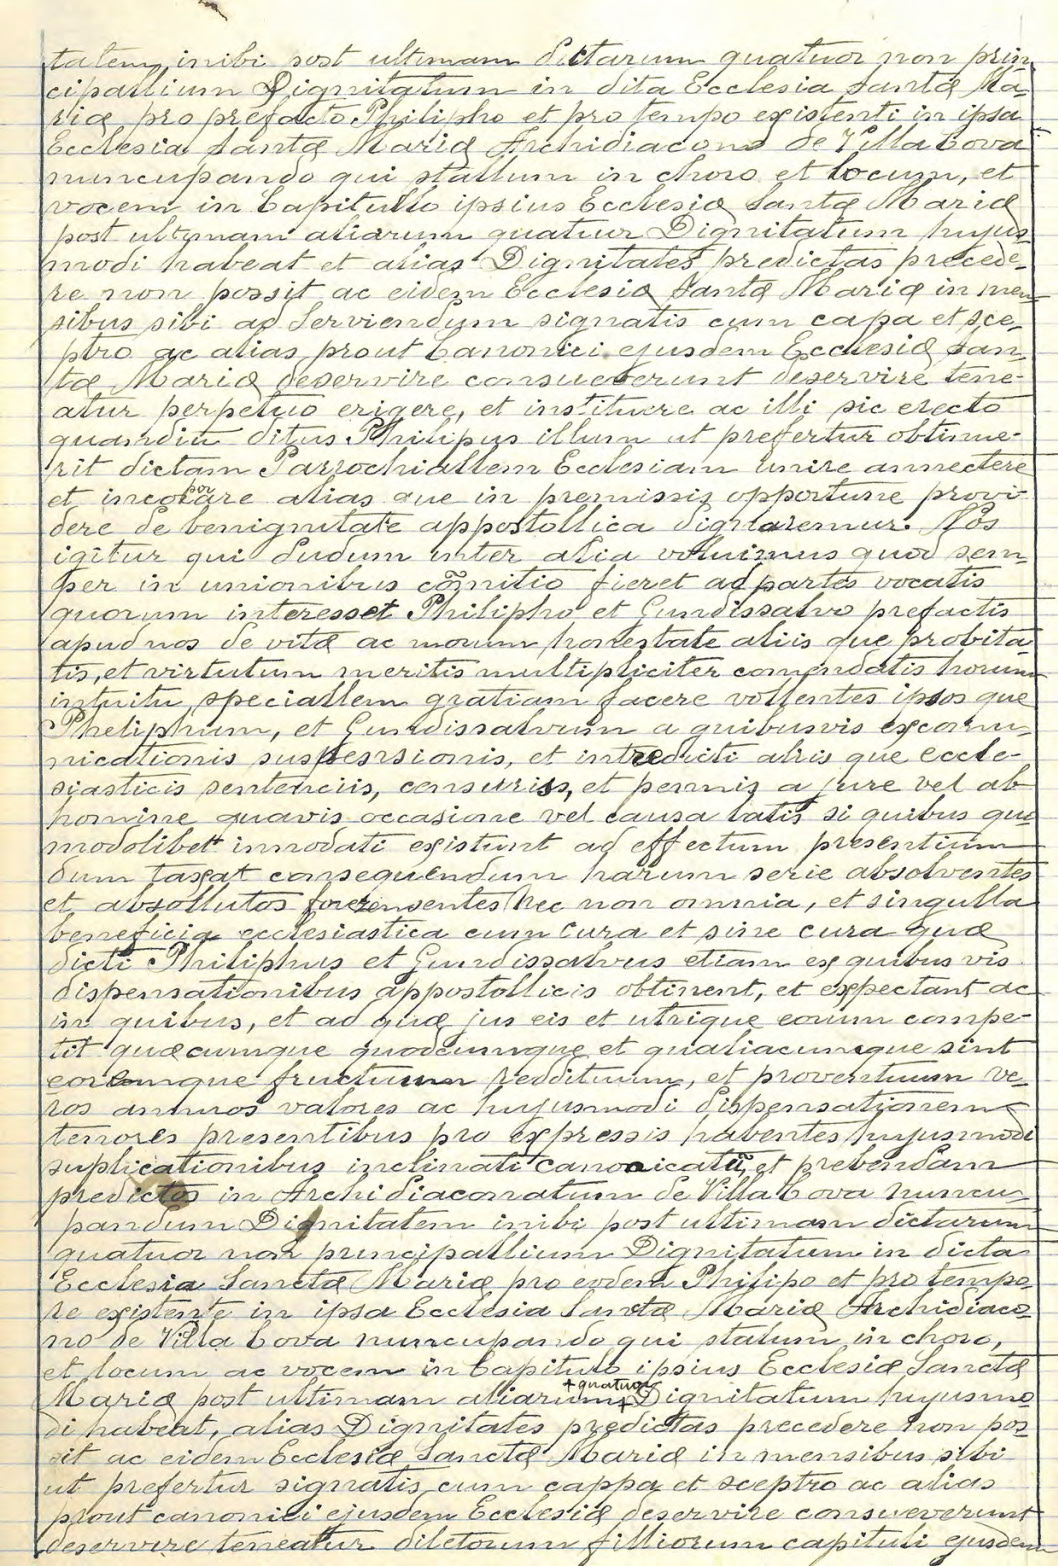 tatem, inibi post ultimam dictarum quatuor non prin
cipallium Dignitatum in dita Ecclesia Santæ Ma-
riæ pro prefacto Philipho et pro tempo existenti in ipsa
Ecclesia Santæ Mariæ Archidiacono de Villa Cova
nuncupando qui stallum in choro et locum, et
vocem in Capitullo ipsius Ecclesiæ Santæ Mariæ
post ultimam aliarum quatuor Dignitatum hujus-
modi habeat et alias Dignitates predictas precede-
re non possit ac eidem Ecclesiæ Santæ Mariæ in men
sibus sibi ad Serviendum signatis cum capa et sce-
ptro ac alias prout Canonici ejusdem Ecclesiæ San
tæ Mariæ deservire consueverunt deservire tene-
atur perpetuo erigere, et instituere ac illi sic erecto
quamdiu ditus Philipus illum ut prefertur obtinue-
rit dictam Parrochiallem Ecclesiam unire annectere
et incorporare alias que in premissis opportune provi-
dere de benignitate appostollica dignaremur. Nos
igitur qui dudum inter alia voluimus quod sem
per in unionibus cõmitio fieret ad partes vocatis
quorum interesset Philipho et Gundissalvo prefactis
apud nos de vitæ ac morum honestate aliis que probita-
tis, et virtutum meritis multipliciter comendatis horum
intuitu, speciallem gratiam facere vollentes ipsos que
Pheliphum, et Gundissalvum a quibusvis excomu-
nicationis suspensionis, et intredicti aliis que eccle-
siasticis sentenciis, censuris, et pennis a jure vel ab
homine quavis occasione vel causa latis si quibus quo
modolibet innodati existunt ad effectum presentium
dum taxat consequendum harum serie absolventes
et absollutos fore censentes Nec non omnia, et singulla
beneficia ecclesiastica cum cura et sine cura quæ
dicti Philiphus et Gundissalvus etiam ex quibus vis
dispensationibus appostollicis obtinent, et expectant ac
in quibus, et ad quæ jus eis et utrique eorum compe-
tit quæcumque quodcumque et qualiacumque sint
eorumque fructuum reddituum, et proventuum ve-
ros annuos valores ac hujusmodi dispensationem
tenores presentibus pro expressis habentes hujusmodi
suplicationibus inclinati canonicatũ, et prebendam
predictos in Archidiaconatum de Villa Cova nuncu-
pandum Dignitatem inibi post ultimam dictarum
quatuor non principallium Dignitatum in dicta
Ecclesia Sanctæ Mariæ pro eodem Philipo et pro tempo-
re existente in ipsa Ecclesia Santæ Mariæ Archidiaco-
no de Villa Cova nuncupando qui statum in choro,
et locum ac vocem in Capitulo ipsius Ecclesiæ Sanctæ
Mariæ post ultimam aliarum + quatuor Dignitatum hujusmo-
di habeat, alias Dignitates predictas precedere non pos-
sit ac eidem Ecclesiæ Sanctæ Mariæ in mensibus sibi
ut prefertur signatis cum cappa et sceptro ac alias
prout canonici ejusdem Ecclesiæ deservire consueverunt
deservire teneatur diletorum filliorum capituli ejusdem